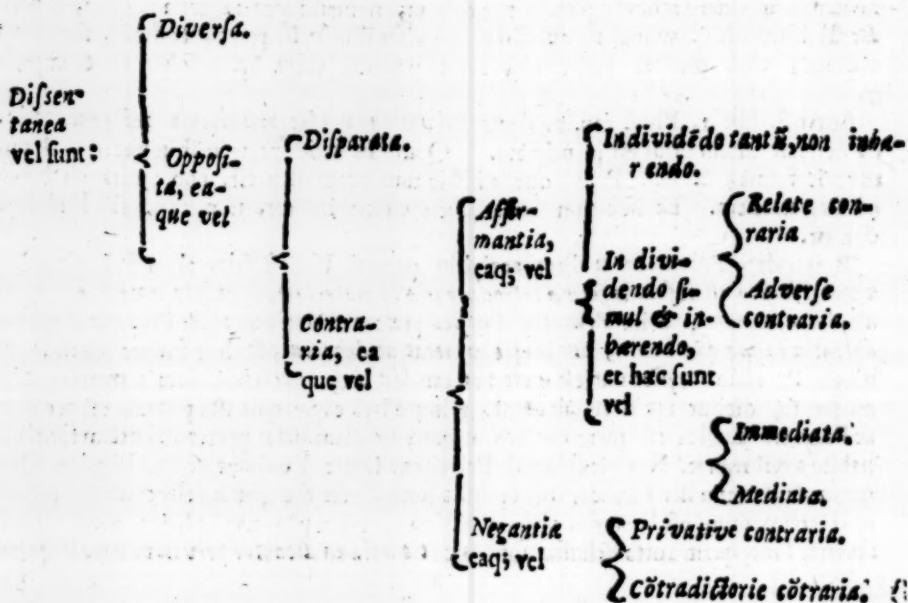 Diversa.
Dissen-
tanea
vel sunt:
Opposi-
ta, ea-
que vel
Disparata.
Contra-
ria, ea
que vel
Affir-
mantia,
eaq; vel
In dividēdo tantū, non inhæ-
rendo.
In divi-
dendo si-
mul & in-
hærendo,
et hæc sunt
vel
Relate con-
traria
Adverse
contraria.
Immediata.
Mediata.
Negantia
eaq; vel
Privative contraria.
Cōtradictorie cōtraria.